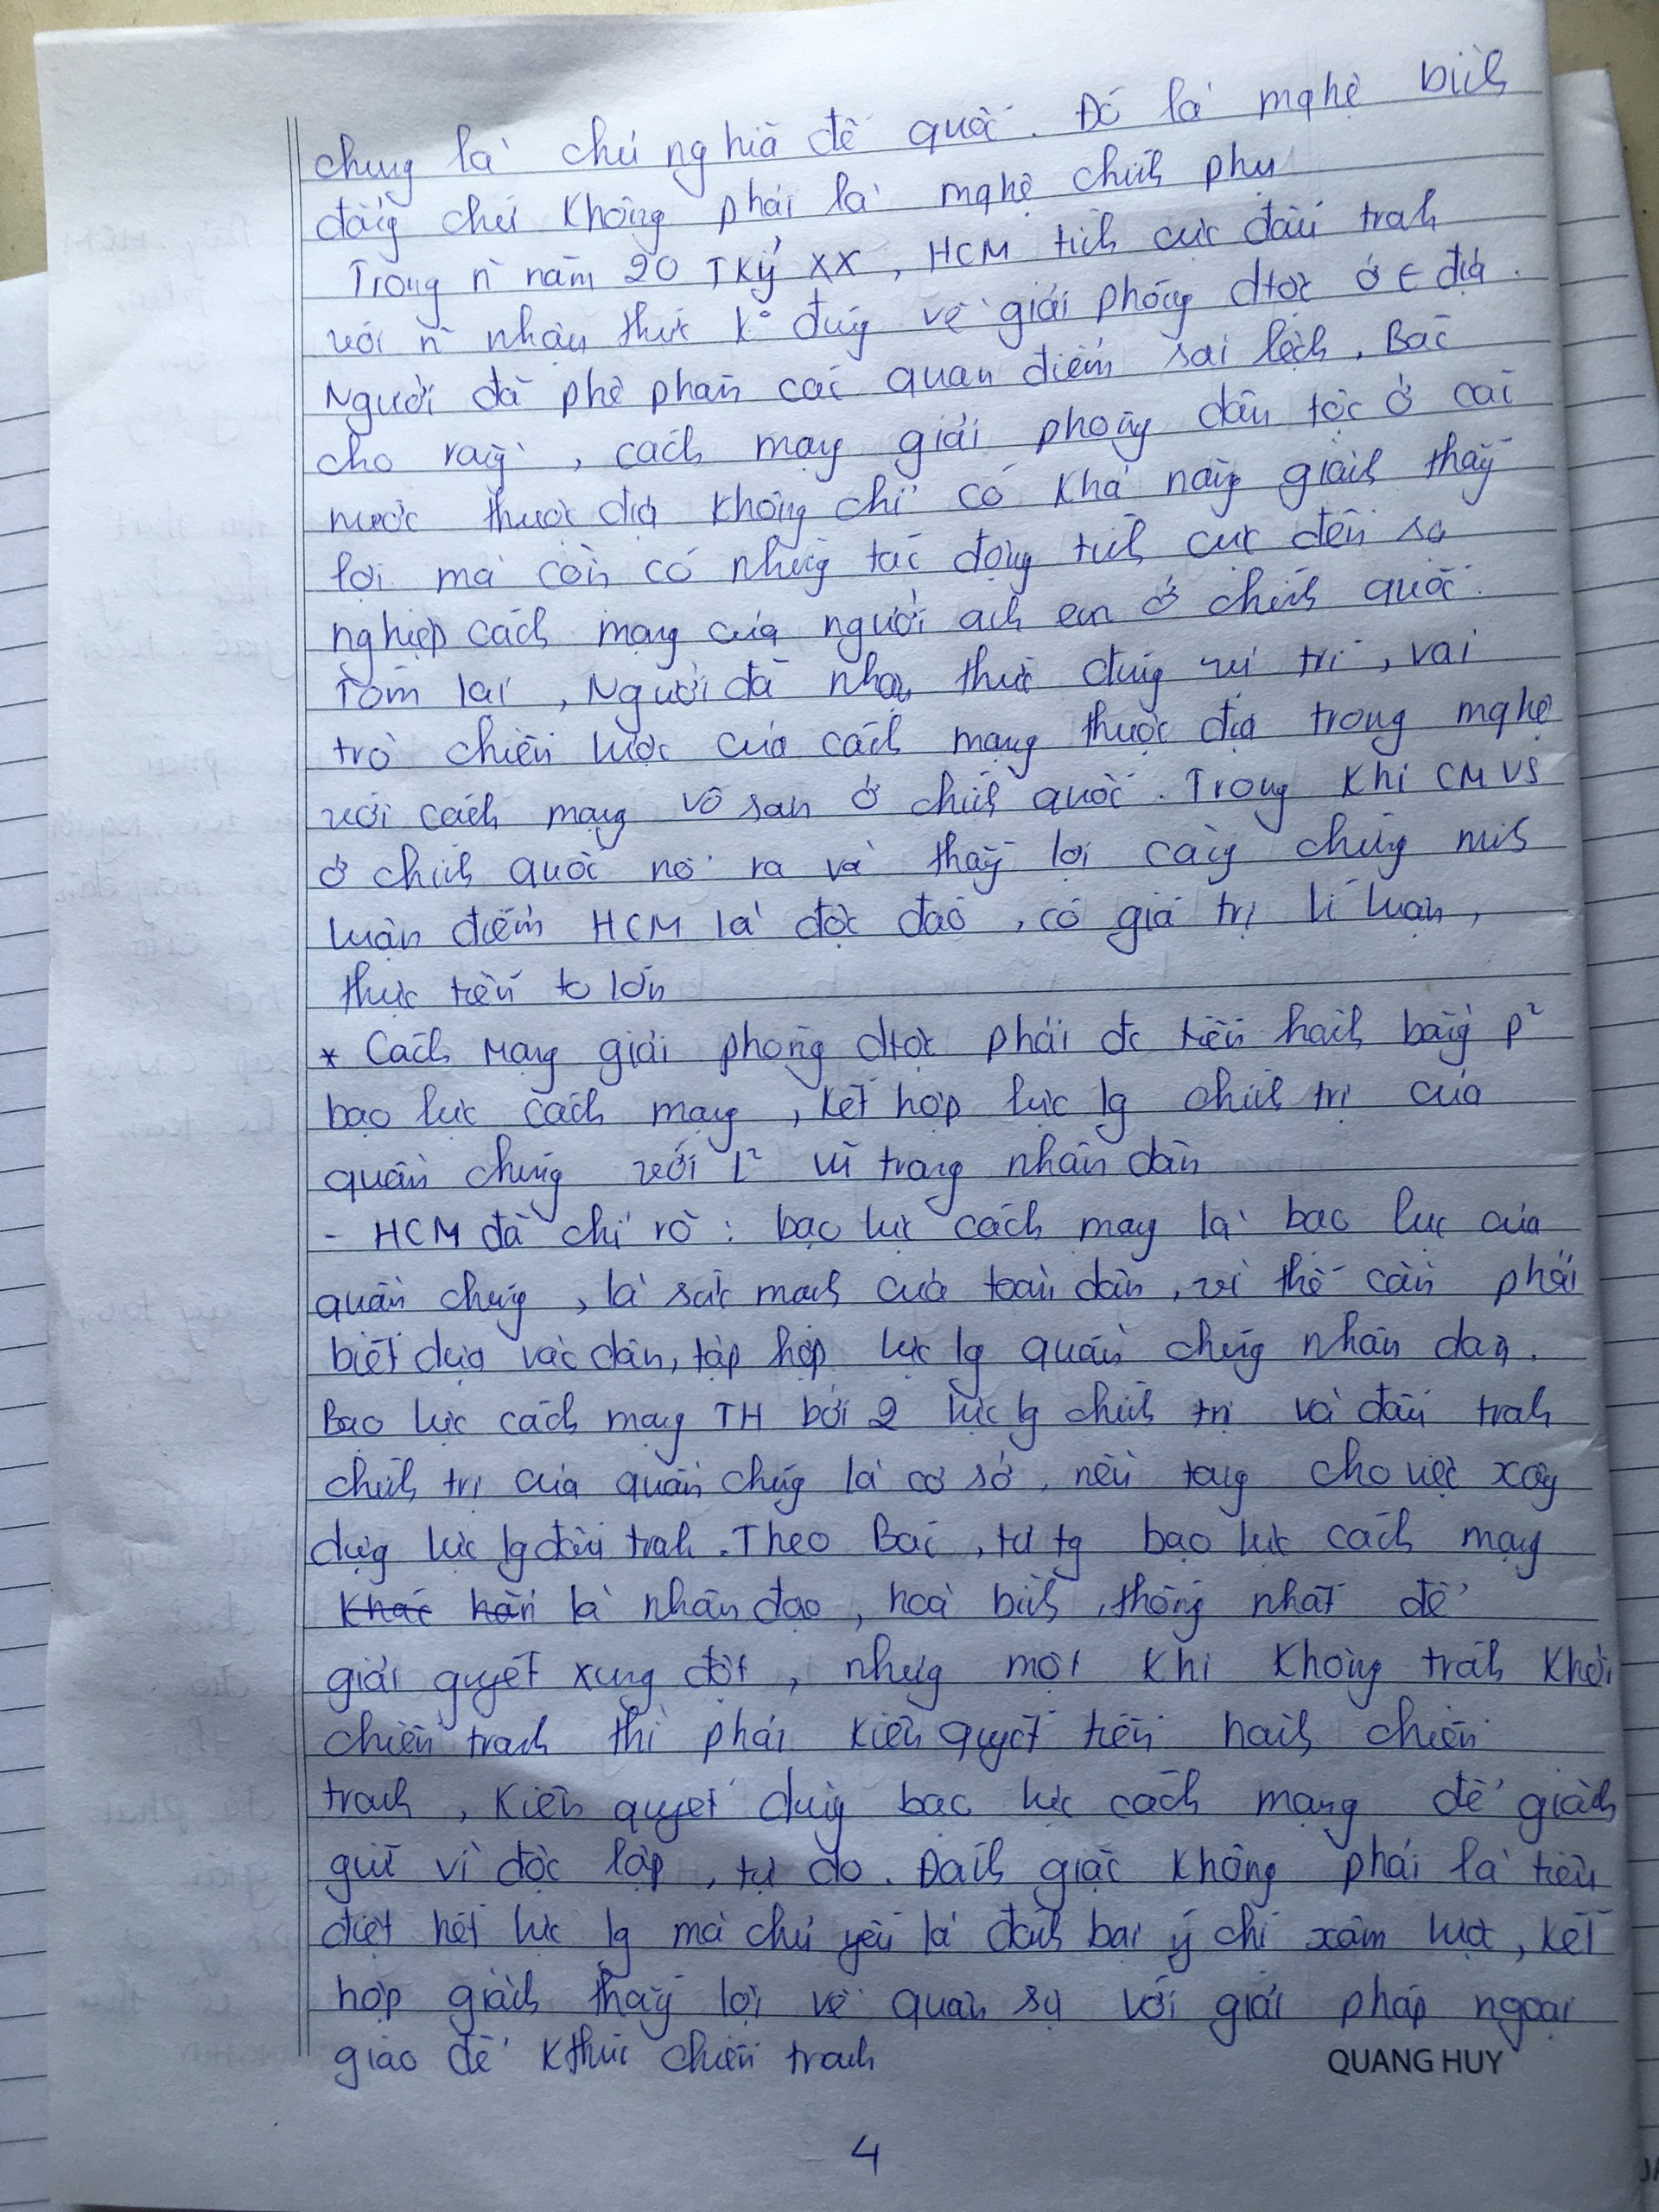 chung là chủ nghĩa đế quốc. Đó là mqhệ bình
đẳng chứ không phải là mqhệ chính phụ
Trong n~ năm 20 TKỷ XX, HCM tích cực đấu tranh
với n~ nhận thức k° đúng về giải phóng dtộc ở t địa.
Người đã phê phán các quan điểm sai lệch. Bác
cho rằng, cách mạng giải phóng dân tộc ở các
nước thuộc địa không chỉ có khả năng giành thắng
lợi mà còn có những tác động tích cực đến sự
nghiệp cách mạng của người anh em ở chính quốc.
Tóm lại, Người đã nhận thức đúng vị trí, vai
trò chiến lược của cách mạng thuộc địa trong mqhệ
với cách mạng vô sản ở chính quốc. Trong khi CMVS
ở chính quốc nổ ra và thắng lợi càng chứng minh
luận điểm HCM là độc đáo, có giá trị lí luận,
thực tiễn to lớn
* Cách mạng giải phóng dtộc phải đc tiến hành bằng p²
bạo lực cách mạng, kết hợp lực lg chính trị của
quần chúng với l² vũ trang nhân dân
- HCM đã chỉ rõ: bạo lực cách mạng là bạo lực của
quần chúng, là sức mạnh của toàn dân, vì thế cần phải
biết dựa vào dân, tập hợp lực lg quần chúng nhân dân.
Bạo lực cách mạng TH bởi 2 lực lg chính trị và đấu tranh
chính trị của quần chúng là cơ sở, nền tảng cho việc xây
dựng lực lg đấu tranh. Theo Bác, tư tg bạo lực cách mạng
khác hẳn là nhân đạo, hoà bình, thống nhất để
giải quyết xung đột, nhưng một khi không tránh khỏi
chiến tranh thì phải kiên quyết tiến hành chiến
tranh, kiên quyết dùng bạo lực cách mạng để giành
giữ vì độc lập, tự do. Đánh giặc không phải là tiêu
diệt hết lực lg mà chủ yếu là đánh bại ý chí xâm lược, kết
hợp giành thắng lợi về quân sự với giải pháp ngoại
giao để kthúc chiến tranh
QUANG HUY
4